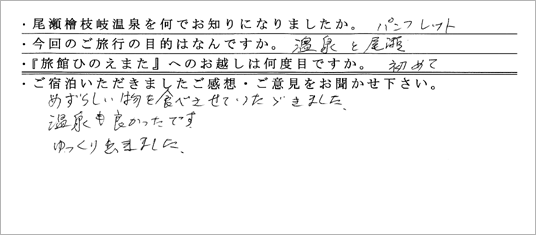 ・尾瀬檜枝岐温泉を何でお知りになりましたか。 パンフレット
・今回のご旅行の目的はなんですか。 温泉と尾瀬
・『旅館ひのえまた』へのお越しは何度目ですか。 初めて
・ご宿泊いただきましたご感想・ご意見をお聞かせ下さい。
めずらしい物を食べさせていただきました、
温泉も良かったです
ゆっくり出きました、